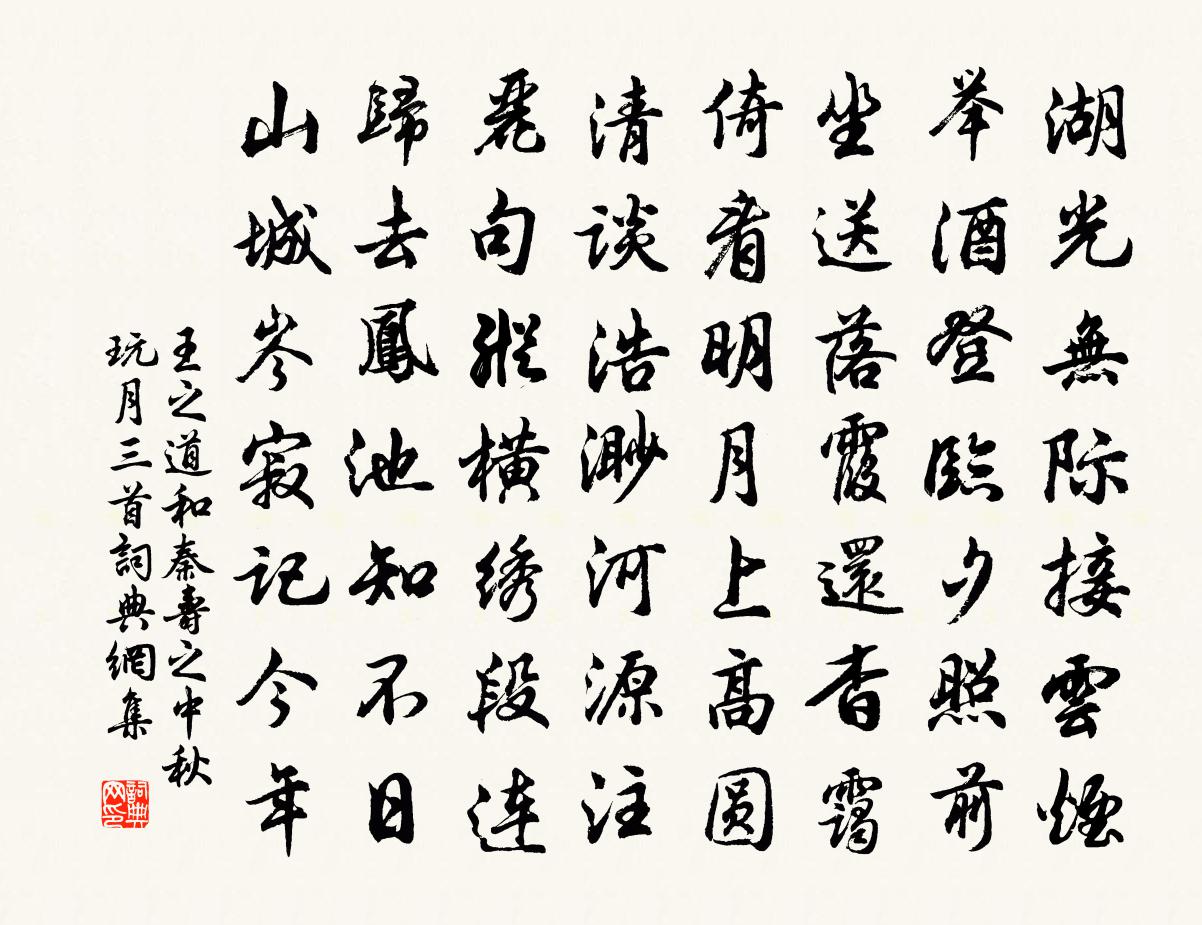 湖光無際接雲煙
举酒登臨夕照前
坐送落霞還杳靄
倚看明月上高圓
清談浩渺河源注
麗句縱橫绣段連
歸去鳳池知不日
山城岑寂記今年
王之道和秦壽之中秋
玩月三首詞典網集
詞典网印